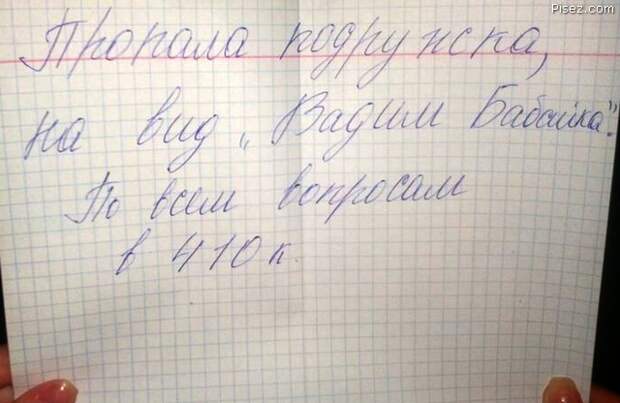 Pisez.com
Пропала подружка,
на вид „Вадим Бабайка".
По всем вопросам
в 410 к.